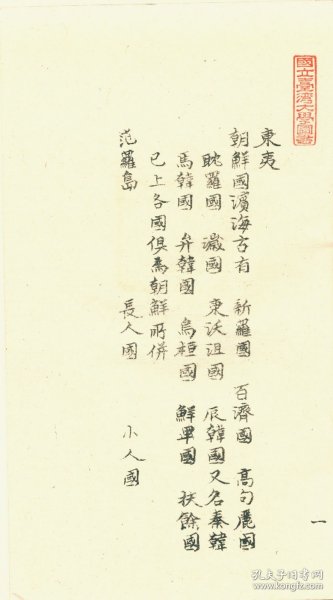 東夷
朝鮮國濱海古有 新羅國 百濟國 高句麗國
耽羅國 濊國 東沃沮國 辰韓國又名秦韓
馬韓國 弁韓國 烏桓國 鮮卑國 扶餘國
已上各國俱為朝鮮所併
范羅島 長人國 小人國
一
國立臺灣大學圖書
孔夫子旧书网